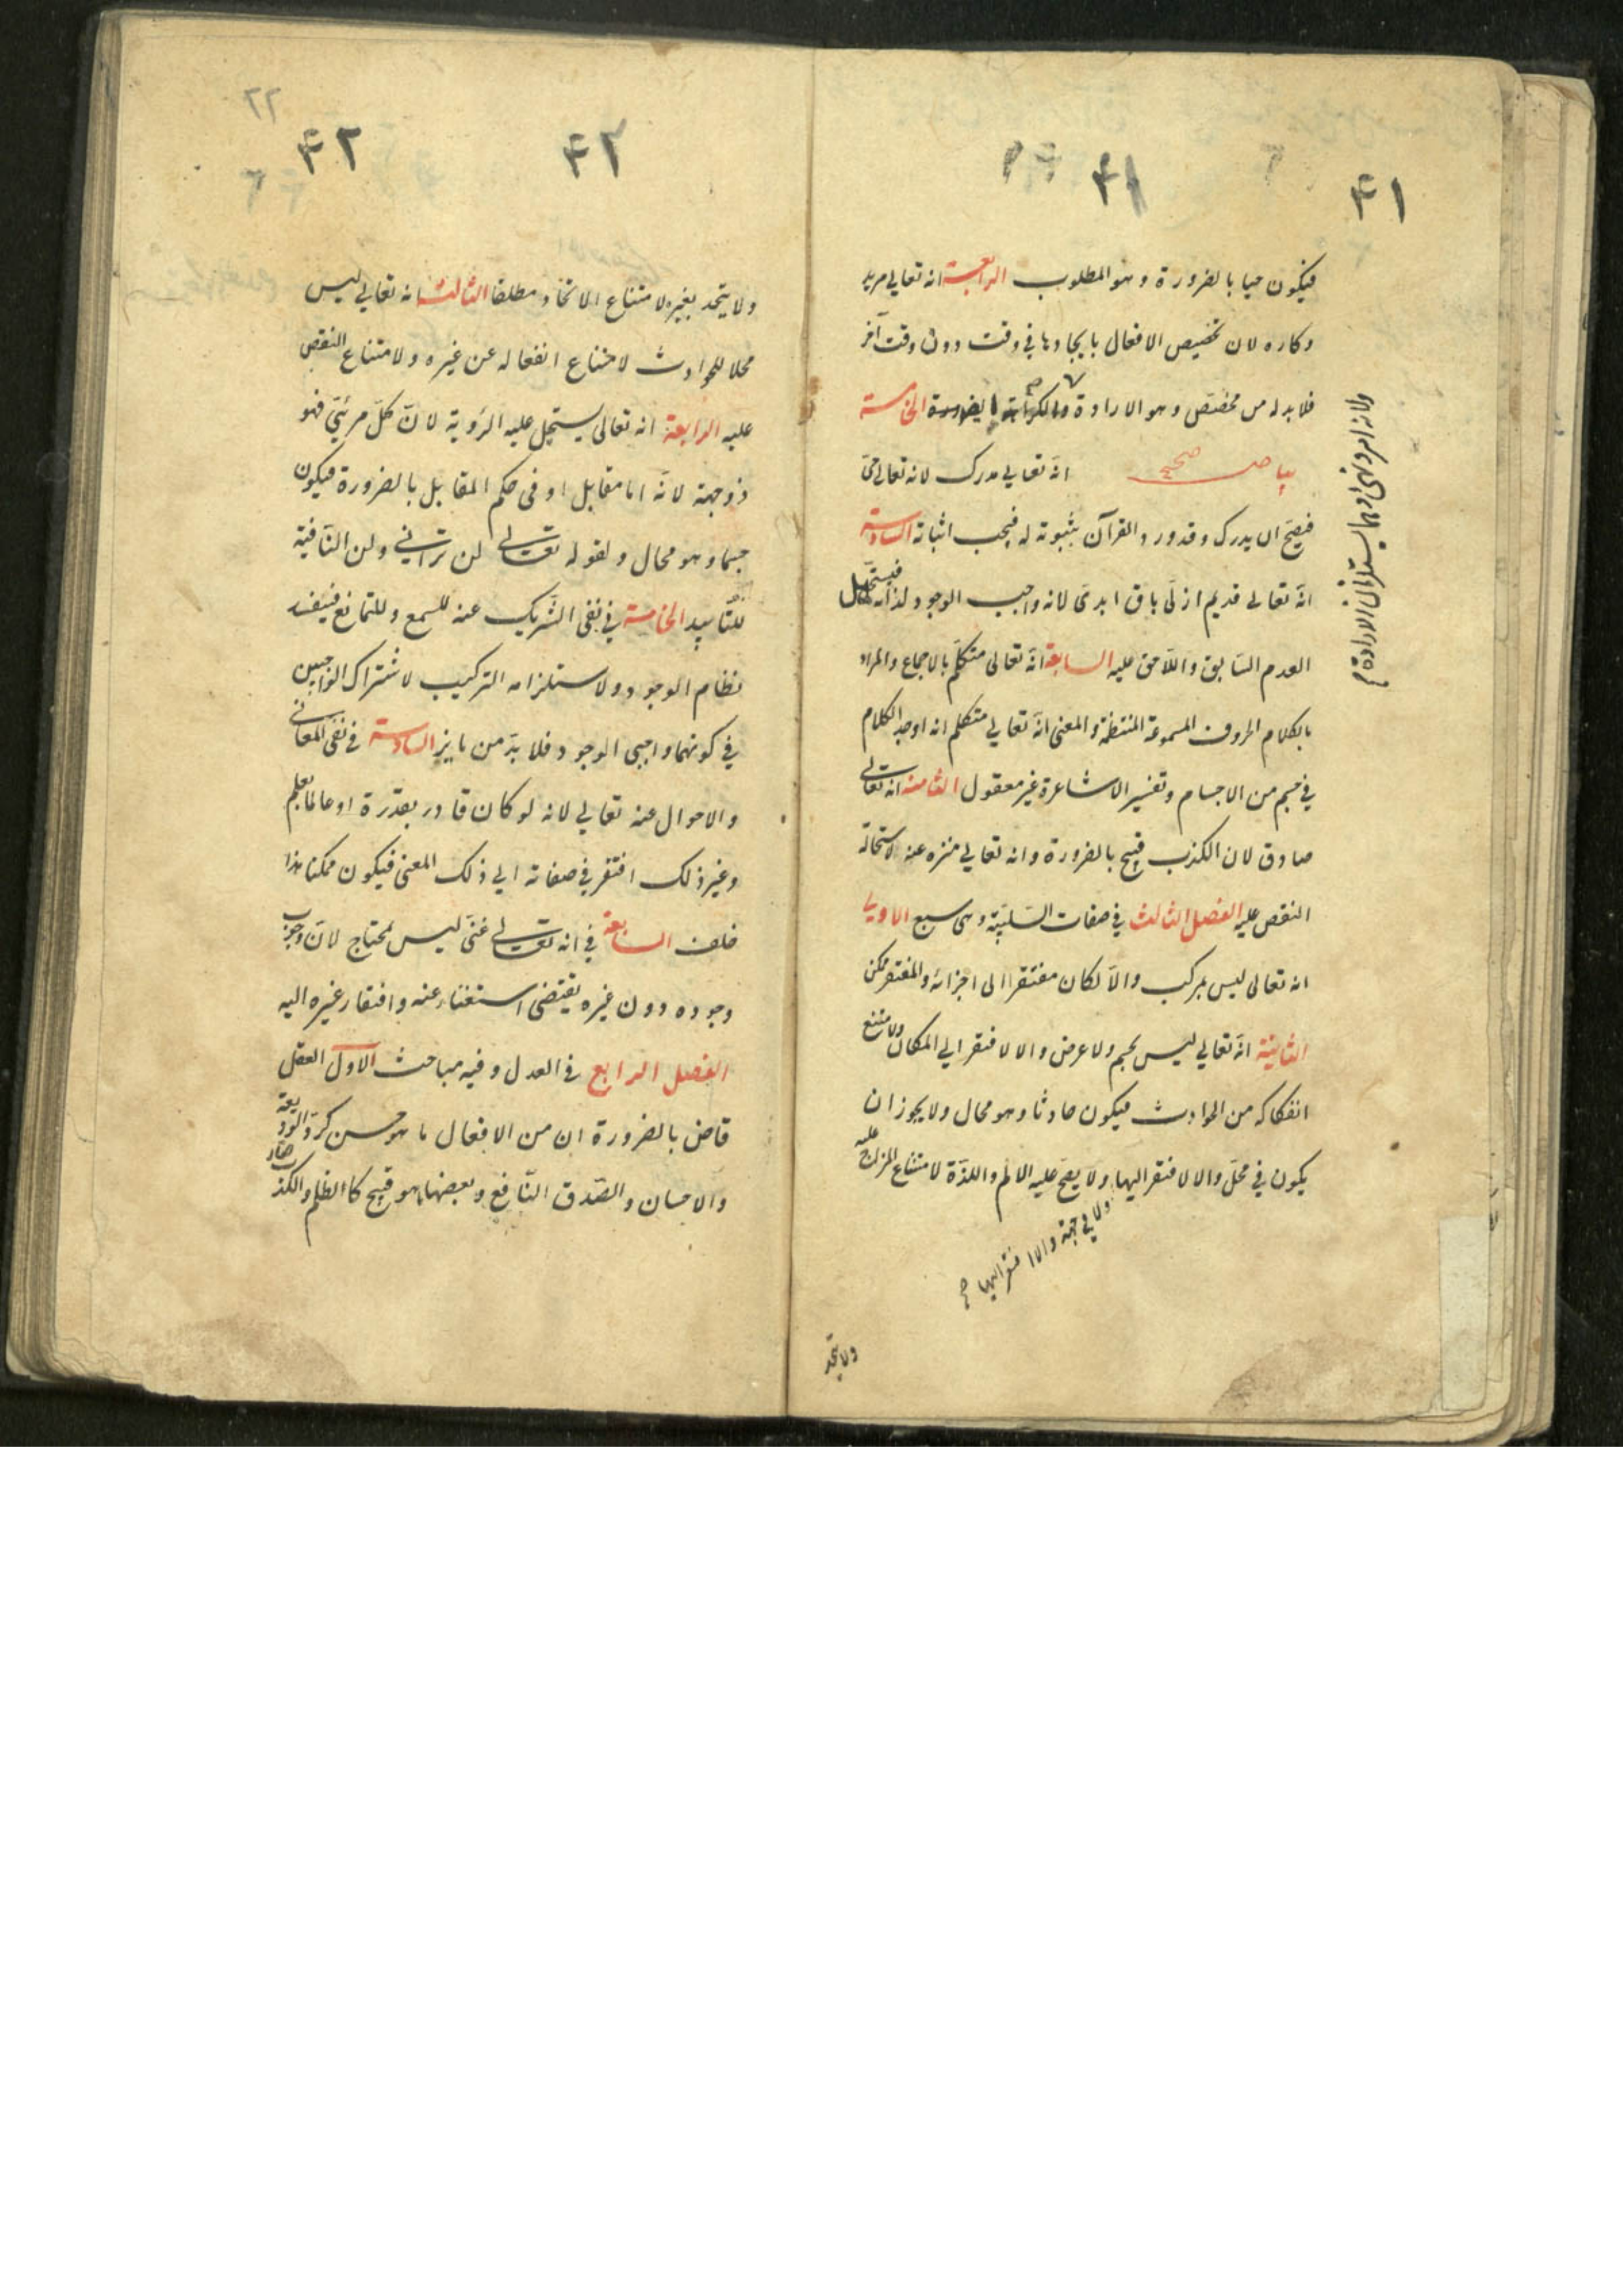 ٤١
٤١
فيكون حيا بالضرورة وهو المطلوب الرابعة انه تعالى مريد
وكاره لان تخصيص الافعال بايجادها في وقت دون وقت آخر
فلا بد له من مخصّص وهو الارادة الخامسة
بياض صحيح انّه تعالى مدرك لانه تعالى حيّ
فيصحّ ان يدرك وقد ورد القرآن بثبوته له فيجب اثباته السادسة
انّه تعالى قديم ازلّى باق ابدىّ لانه واجب الوجود لذاته فيستحيل
العدم السّابق واللّاحق عليه السابعة انّه تعالى متكلّم بالاجماع والمراد
بالكلام الحروف المسموعة المنتظمة والمعنى انّه تعالى متكلم انه اوجد الكلام
في جسم من الاجسام وتفسير الاشاعرة غير معقول الثامنة انه تعالى
صادق لان الكذب قبيح بالضرورة وانه تعالى منزه عنه لاستحالة
النقص عليه الفصل الثالث في صفات السّلبيّة وهى سبع الاولى
انه تعالى ليس بمركب والّا لكان مفتقرا الى اجزائه والمفتقر ممكن
الثانية انّه تعالى ليس بجسم ولا عرض والا لافتقر الى المكان ولامتنع
انفكاكه من الحوادث فيكون حادثا وهو محال ولا يجوز ان
يكون في محلّ والا لافتقر اليها ولا يصحّ عليه الالم واللذّة لامتناع المزاج عليه
ولا في جهة والا افتقر اليها صح
ولا يتحد
ولانه امر ونهى وهما يستلزمان الارادة
٢٢
٤٢
٤٢
ولا يتحد بغيره لامتناع الاتحاد مطلقا الثالثة انه تعالى ليس
محلا للحوادث لامتناع انفعاله عن غيره ولامتناع النقص
عليه الرابعة انه تعالى يستحيل عليه الرّوية لانّ كلّ مرئىّ فهو
ذو جهة لانّه اما مقابل او في حكم المقابل بالضرورة فيكون
جسما وهو محال ولقوله تعالى لن ترانى ولن النّافية
للتّابيد الخامسة في نفى الشّريك عنه للسمع وللتمانع فيفسد
نظام الوجود ولاستلزامه التركيب لاشتراك الواجبين
في كونهما واجبى الوجود فلا بدّ من مايز السادسة في نفى المعانى
والاحوال عنه تعالى لانه لو كان قادر بقدرة او عالما بعلم
وغير ذلك افتقر في صفاته الى ذلك المعنى فيكون ممكنا هذا
خلف السابعة في انه تعالى غنىّ ليس بمحتاج لانّ وجوب
وجوده دون غيره يقتضى استغناءه عنه وافتقار غيره اليه
الفصل الرابع في العدل وفيه مباحث الاول العقل
قاض بالضرورة ان من الافعال ما هو حسن كردّ الوديعة
والاحسان والصّدق النّافع وبعضها ما هو قبيح كالظلم والكذب